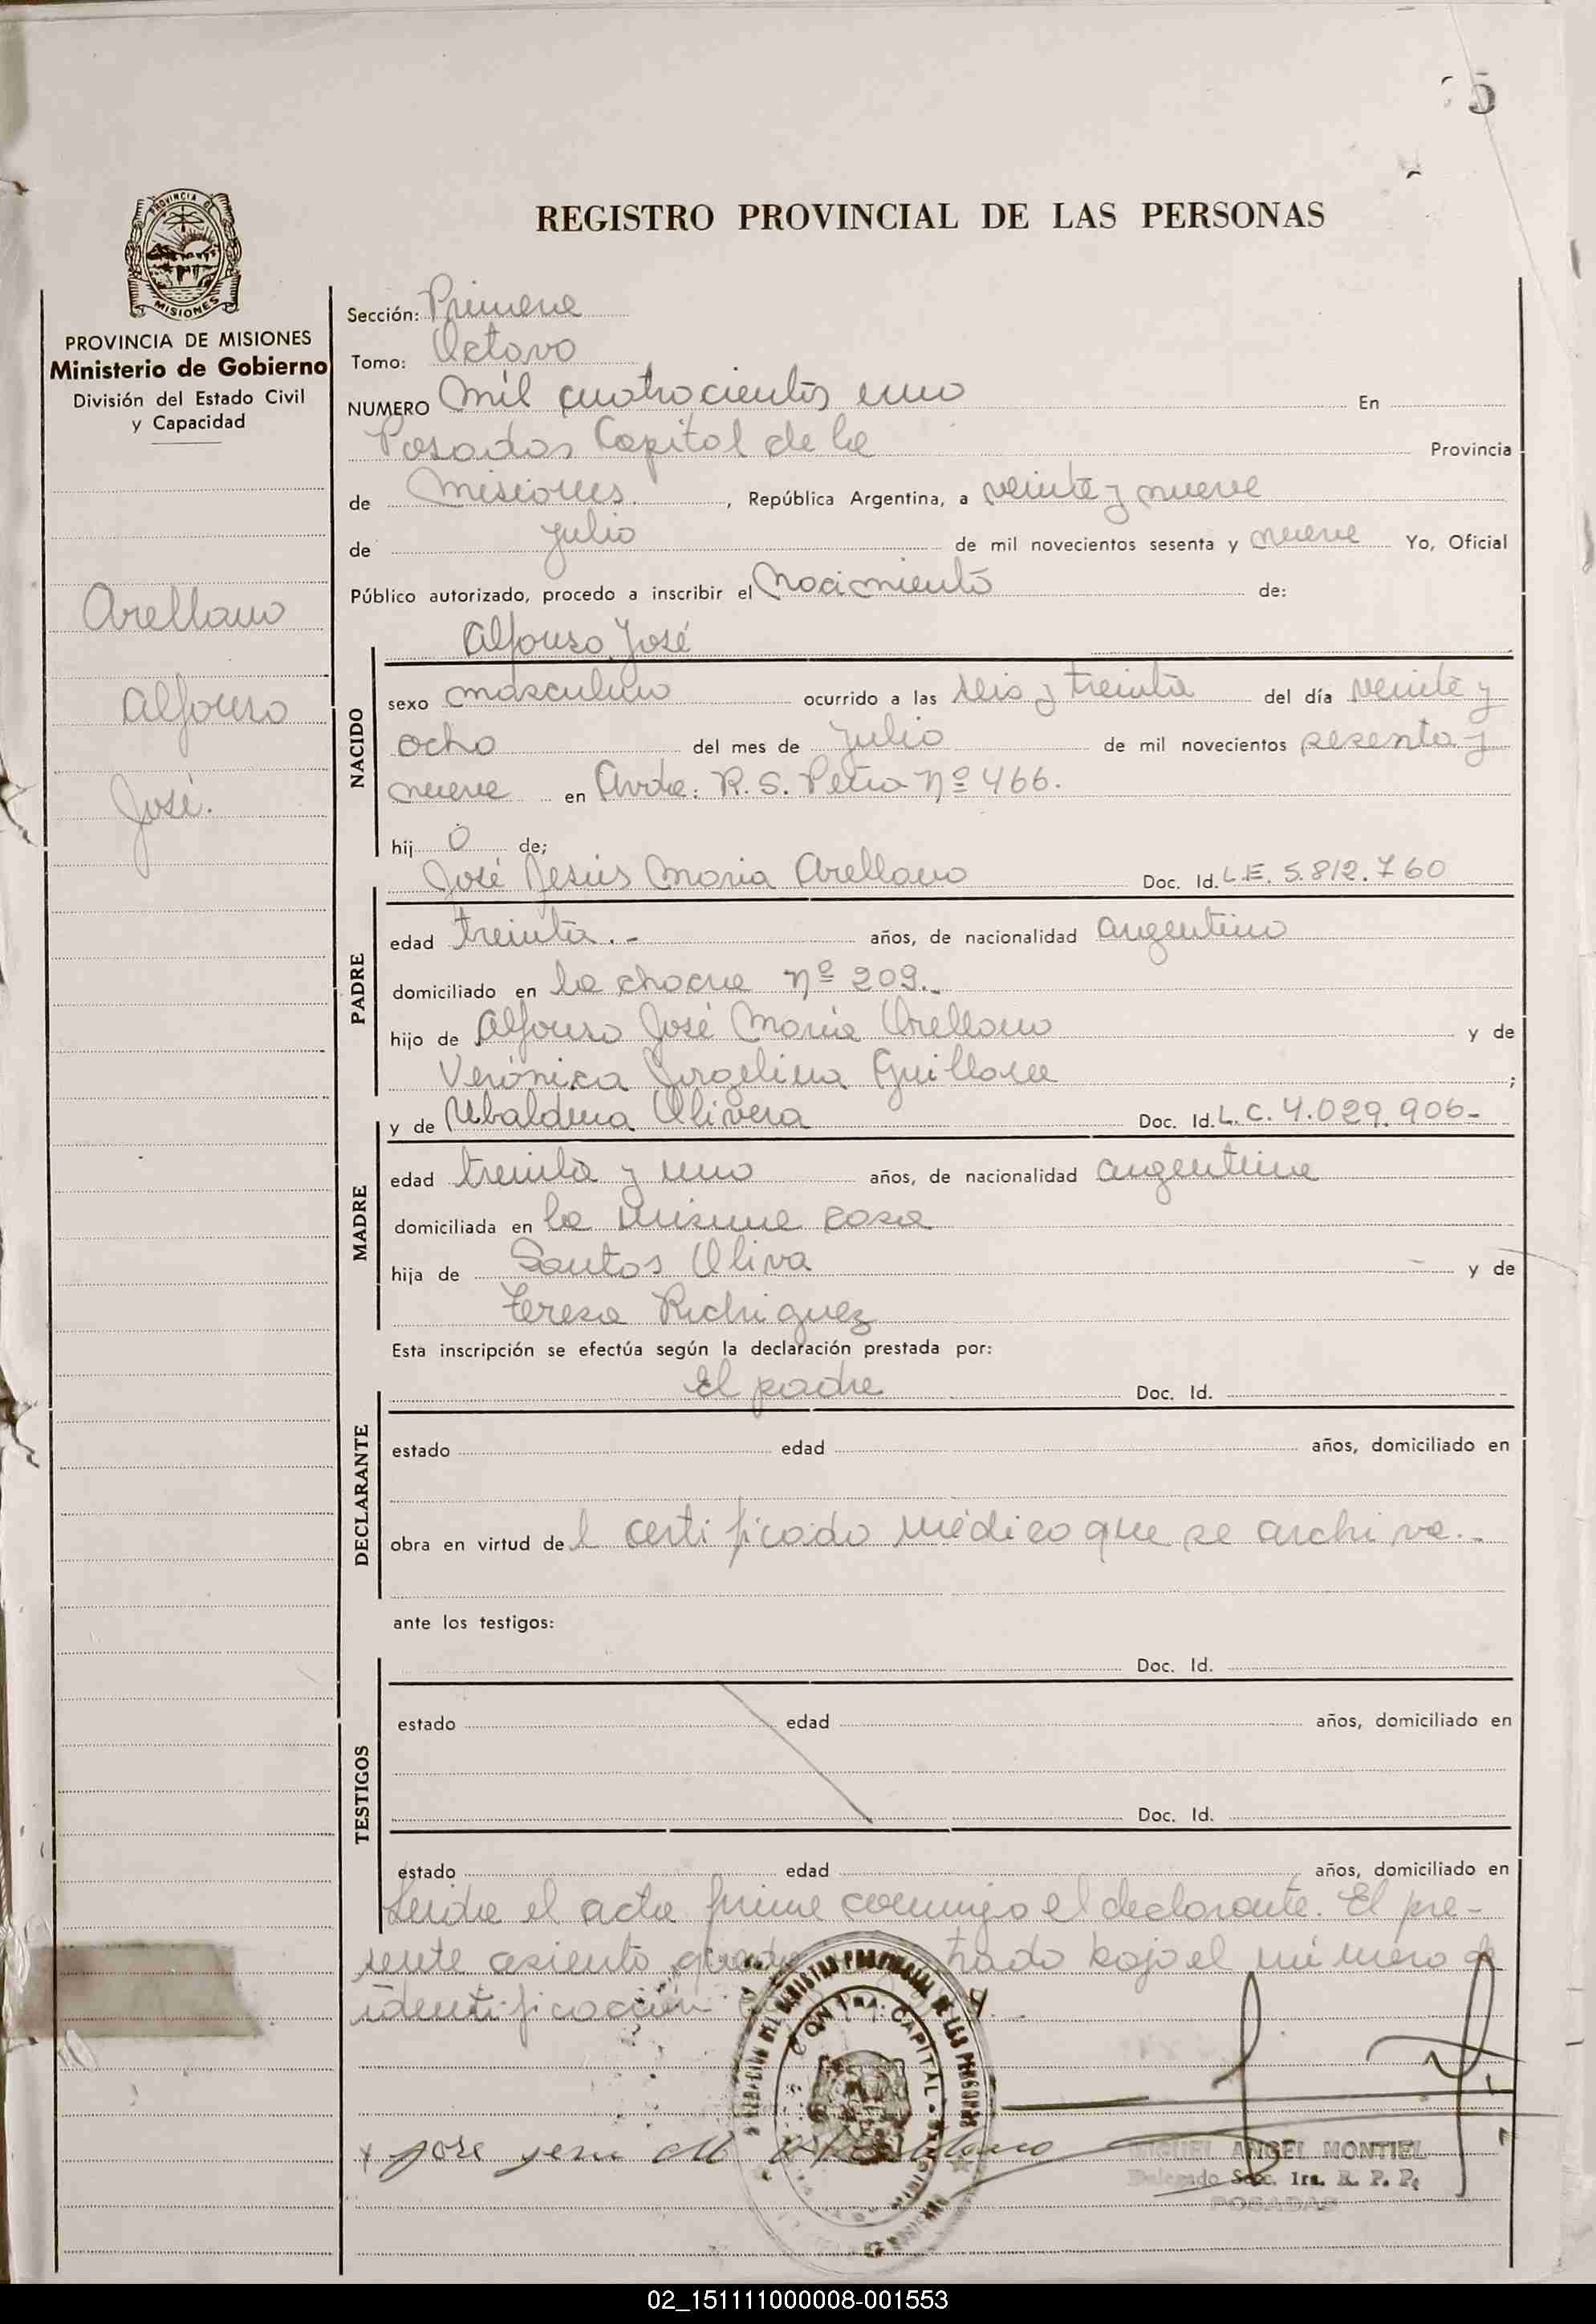 5
REGISTRO PROVINCIAL DE LAS PERSONAS
PROVINCIA DE
MISIONES
PROVINCIA DE MISIONES
Ministerio de Gobierno
División del Estado Civil
y Capacidad
Arellano
Alfonso
José.
Sección: Primera
Tomo: Octavo
NUMERO Mil cuatrocientos uno En
Posadas Capital de la Provincia
de Misiones, República Argentina, a veinte y nueve
de julio de mil novecientos sesenta y nueve Yo, Oficial
Público autorizado, procedo a inscribir el Nacimiento de:
Alfonso José
NACIDO
sexo masculino ocurrido a las seis y treinta del día veinte y
ocho del mes de julio de mil novecientos sesenta y
nueve en Avda: R. S. Peña Nº 466.
hij o de;
José Jesús Maria Arellano Doc. Id. L.E. 5.812.760
PADRE
edad treinta.- años, de nacionalidad argentino
domiciliado en la chacra Nº 209.-
hijo de Alfonso José Maria Arellano y de
Verónica Guillone ;
y de Ubaldina Olivera Doc. Id. L.C. 4.029.906-
MADRE
edad treinta y uno años, de nacionalidad argentina
domiciliada en la misma casa
hija de Santos Oliva y de
Teresa Rodriguez
Esta inscripción se efectúa según la declaración prestada por:
El padre Doc. Id.
DECLARANTE
estado edad años, domiciliado en
obra en virtud de l certificado médico que se archiva.-
ante los testigos:
Doc. Id.
TESTIGOS
estado edad años, domiciliado en
Doc. Id.
estado edad años, domiciliado en
Leida el acta firma conmigo el declarante. El pre-
sente asiento queda trado bajo el número de
identificación
REGISTRO PROVINCIAL DE LAS PERSONAS
CAPITAL
jose
MIGUEL ANGEL MONTIEL
Delegado Secc. 1ra. R. P. P.
POSADAS
02_151111000008-001553